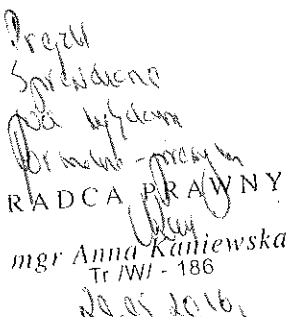 Projekt
Sprawdzono
pod względem
formalno-prawnym
RADCA PRAWNY
mgr Anna Kaniewska
Tr /W/ - 186
2016